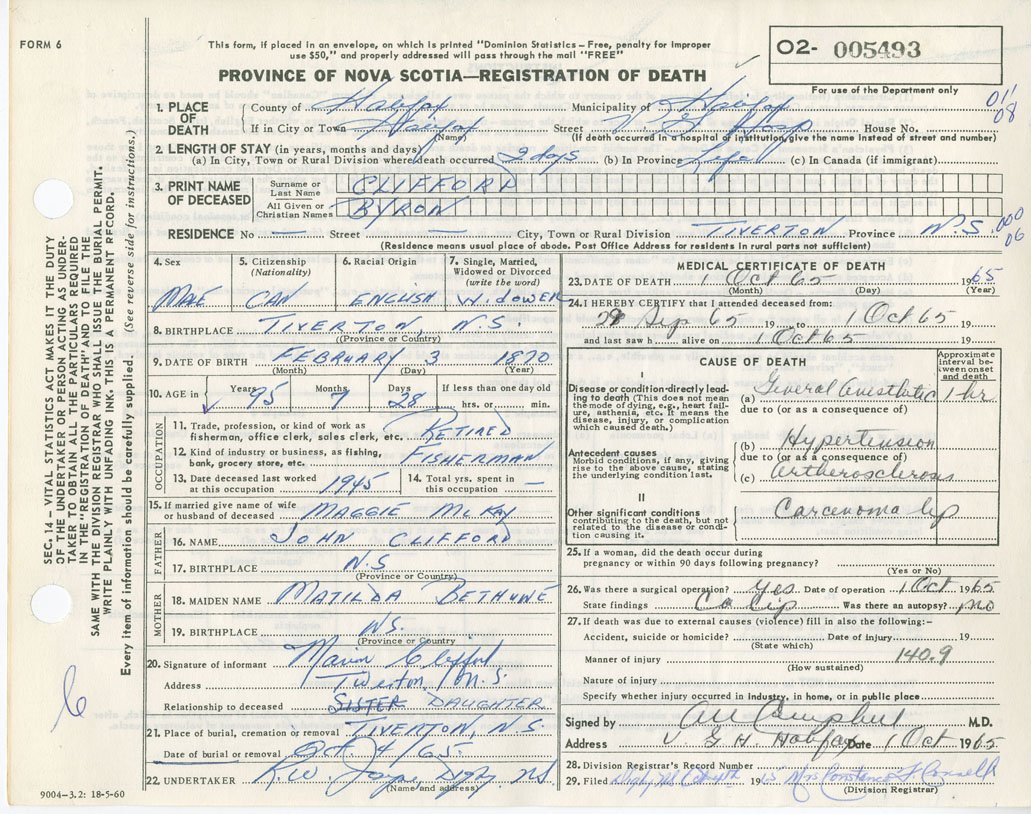 FORM 6
This form, if placed in an envelope, on which is printed "Dominion Statistics – Free, penalty for improper
use $50," and properly addressed will pass through the mail "FREE"
O2- 005493
PROVINCE OF NOVA SCOTIA—REGISTRATION OF DEATH
For use of the Department only
011
08
1. PLACE OF DEATH
County of Halifax Municipality of Halifax
If in City or Town Halifax Street V. G. Hosp House No.
(Name) (If death occurred in a hospital or institution, give the name instead of street and number)
2. LENGTH OF STAY (in years, months and days)
(a) In City, Town or Rural Division where death occurred 2 days (b) In Province Life (c) In Canada (if immigrant)
3. PRINT NAME OF DECEASED
Surname or Last Name CLIFFORD
All Given or Christian Names BYRON
RESIDENCE No — Street — City, Town or Rural Division TIVERTON Province N.S.
000
06
(Residence means usual place of abode. Post Office Address for residents in rural parts not sufficient)
4. Sex MALE
5. Citizenship (Nationality) CAN
6. Racial Origin ENGLISH
7. Single, Married, Widowed or Divorced (write the word) WIDOWER
8. BIRTHPLACE TIVERTON, N.S.
(Province or Country)
9. DATE OF BIRTH FEBRUARY 3 1870
(Month) (Day) (Year)
10. AGE in Years 95 Months 7 Days 28 If less than one day old hrs. or min.
OCCUPATION
11. Trade, profession, or kind of work as fisherman, office clerk, sales clerk, etc. RETIRED
12. Kind of industry or business, as fishing, bank, grocery store, etc. FISHERMAN
13. Date deceased last worked at this occupation 1945
14. Total yrs. spent in this occupation —
15. If married give name of wife or husband of deceased MAGGIE McKAY
FATHER
16. NAME JOHN CLIFFORD
17. BIRTHPLACE N.S
(Province or Country)
MOTHER
18. MAIDEN NAME MATILDA BETHUNE
19. BIRTHPLACE NS.
(Province or Country
20. Signature of informant Clifford
Address Tiverton N.S.
Relationship to deceased SISTER DAUGHTER
21. Place of burial, cremation or removal TIVERTON, N.S.
Date of burial or removal Oct. 4/65
22. UNDERTAKER R.W. Digby NS
(Name and address)
9004–3.2: 18-5-60
MEDICAL CERTIFICATE OF DEATH
23. DATE OF DEATH 1 Oct 65 1965
(Month) (Day) (Year)
24. I HEREBY CERTIFY that I attended deceased from:
29 Sep 65 19 to 1 Oct 65 19
and last saw h alive on 1 Oct 65 19
CAUSE OF DEATH
Approximate interval between onset and death
I
Disease or condition-directly leading to death (This does not mean the mode of dying, e.g., heart failure, asthenia, etc. It means the disease, injury, or complication which caused death.)
(a) General Anesthetic 1 hr.
due to (or as a consequence of)
Antecedent causes
Morbid conditions, if any, giving rise to the above cause, stating the underlying condition last.
(b) Hypertension
due to (or as a consequence of)
(c) Artherosclerosis
II
Other significant conditions contributing to the death, but not related to the disease or condition causing it.
Carcenoma lip
25. If a woman, did the death occur during pregnancy or within 90 days following pregnancy?
(Yes or No)
26. Was there a surgical operation? yes Date of operation 1 Oct 1965
State findings Ca lip Was there an autopsy? no
27. If death was due to external causes (violence) fill in also the following:–
Accident, suicide or homicide? Date of injury 19
(State which)
Manner of injury 140.9
(How sustained)
Nature of injury
Specify whether injury occurred in industry, in home, or in public place
Signed by Campbell M.D.
Address V G H. Halifax Date 1 Oct 1965
28. Division Registrar's Record Number
29. Filed 19 65 Mrs Constance
(Division Registrar)
SEC. 14 – VITAL STATISTICS ACT MAKES IT THE DUTY
OF THE UNDERTAKER OR PERSON ACTING AS UNDER-
TAKER TO OBTAIN ALL THE PARTICULARS REQUIRED
IN THE "REGISTRATION OF DEATH" AND TO FILE THE
SAME WITH THE DIVISION REGISTRAR WHO SHALL ISSUE THE BURIAL PERMIT.
WRITE PLAINLY WITH UNFADING INK–THIS IS A PERMANENT RECORD.
Every item of information should be carefully supplied. (See reverse side for instructions.)